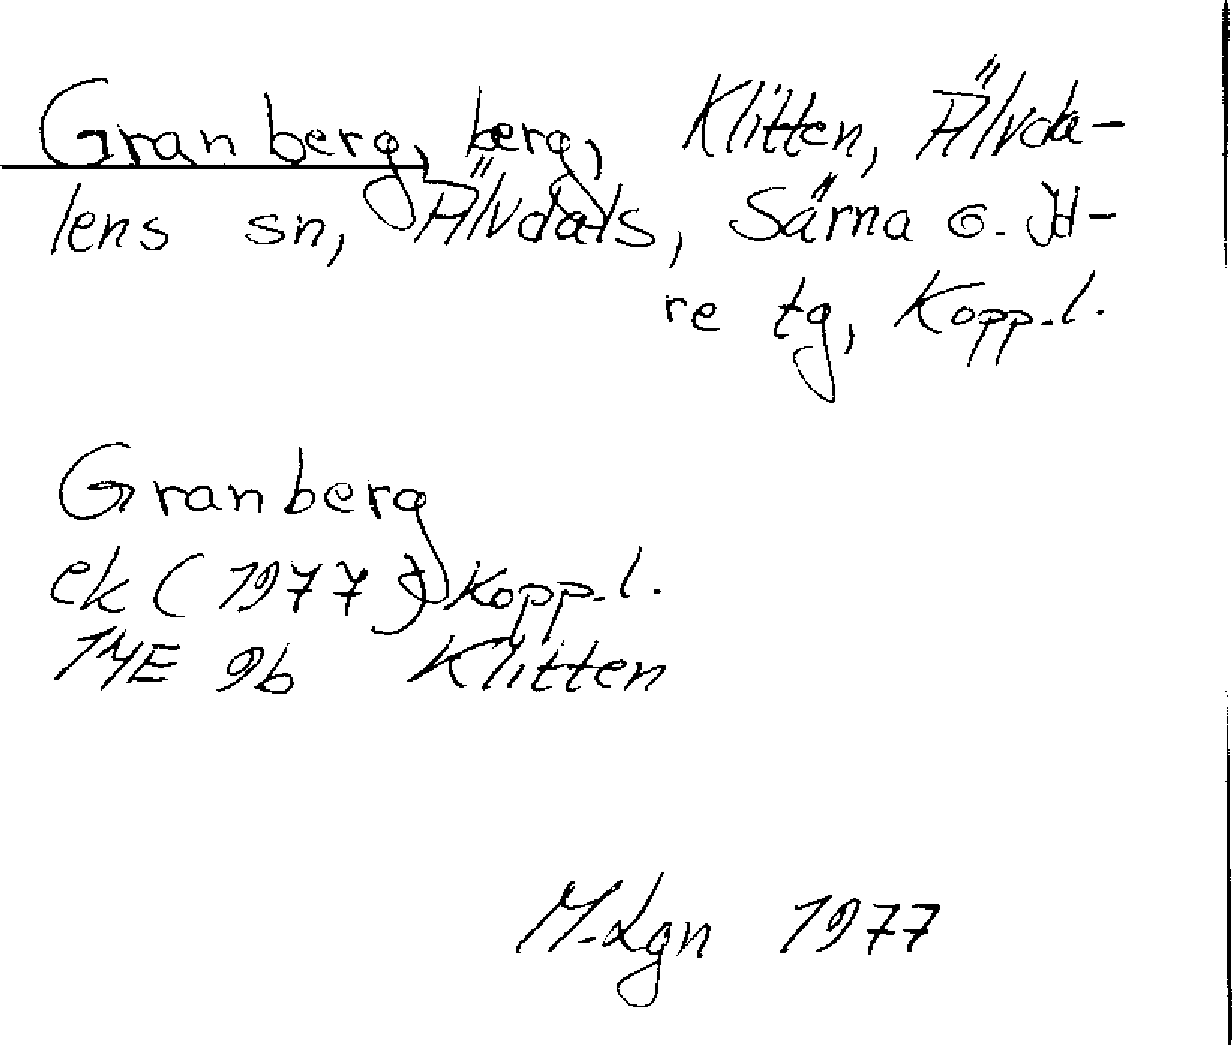 Granberg, berg, Klitten, Älvda-
lens sn, Älvdals, Särna o. Id-
re tg, Kopp.l.
Granberg
ek (1977) Kopp.l.
14E 9b Klitten
M-Lgn 1977